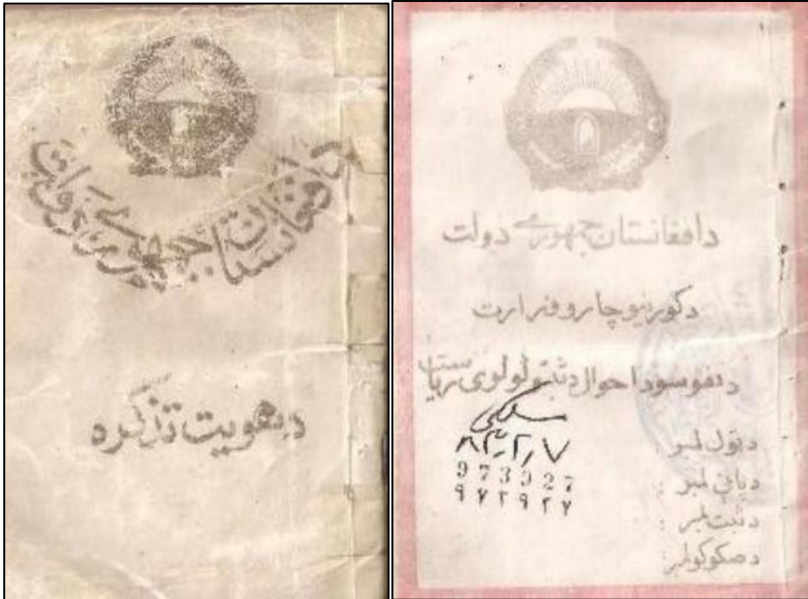 دافغانستان جمهوري دولت
دهویت تذکره
دافغانستان جمهوري دولت
دکورنیو چارو وزارت
دنفوسو داحوال دثبت لولوی ریاست
دټول لمبر :
973927
۹۷۳۹۲۷
دپاڼی لمبر :
دثبت لمبر :
دصکوکو لمبر: